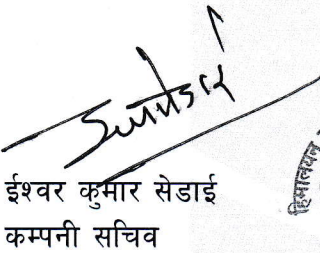 ईश्वर कुमार सेडाई
कम्पनी सचिव
हिमालयन